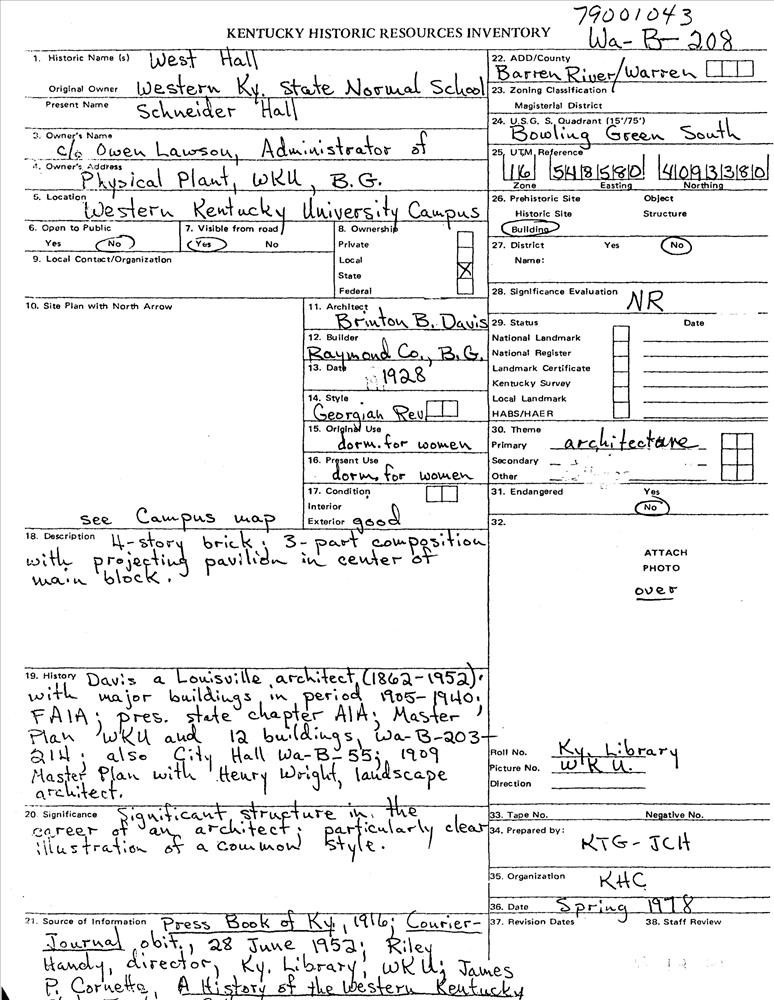 79001043
KENTUCKY HISTORIC RESOURCES INVENTORY
Wa-B-208
1. Historic Name (s) West Hall
Original Owner Western Ky. State Normal School
Present Name Schneider Hall
3. Owner's Name
c/o Owen Lawson, Administrator of
4. Owner's Address
Physical Plant, WKU, B.G.
5. Location
Western Kentucky University Campus
6. Open to Public
Yes No
7. Visible from road
Yes No
8. Ownership
Private
Local
State
Federal
9. Local Contact/Organization
10. Site Plan with North Arrow
see Campus map
11. Architect
Brinton B. Davis
12. Builder
Raymond Co., B.G.
13. Date
1928
14. Style
Georgian Rev
15. Original Use
dorm. for women
16. Present Use
dorm. for women
17. Condition
Interior
Exterior good
18. Description 4-story brick; 3-part composition
with projecting pavilion in center of
main block.
19. History Davis a Louisville architect (1862-1952);
with major buildings in period 1905-1940;
FAIA; pres. state chapter AIA; Master
Plan WKU and 12 buildings, Wa-B-203-
214; also City Hall Wa-B-55; 1909
Master Plan with Henry Wright, landscape
architect.
20. Significance Significant structure in the
career of an architect; particularly clear
illustration of a common style.
21. Source of Information Press Book of Ky., 1916; Courier-
Journal obit., 28 June 1952; Riley
Handy, director, Ky. Library, WKU; James
P. Cornette, A History of the Western Kentucky
22. ADD/County
Barren River/Warren
23. Zoning Classification
Magisterial District
24. U.S.G. S. Quadrant (15'/75')
Bowling Green South
25. UTM Reference
16 548580 4093380
Zone Easting Northing
26. Prehistoric Site Object
Historic Site Structure
Building
27. District Yes No
Name:
28. Significance Evaluation NR
29. Status Date
National Landmark
National Register
Landmark Certificate
Kentucky Survey
Local Landmark
HABS/HAER
30. Theme
Primary architecture
Secondary
Other
31. Endangered Yes
No
32.
ATTACH
PHOTO
over
Roll No. Ky. Library
Picture No. WKU.
Direction
33. Tape No. Negative No.
34. Prepared by:
KTG-JCH
35. Organization
KHC
36. Date Spring 1978
37. Revision Dates 38. Staff Review